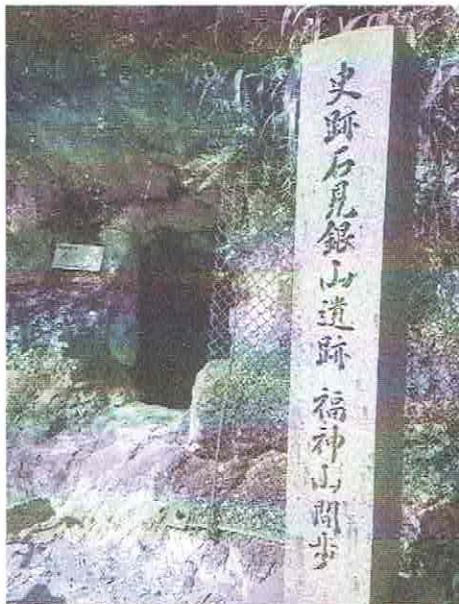 史跡石見銀山遺跡 福神山間歩